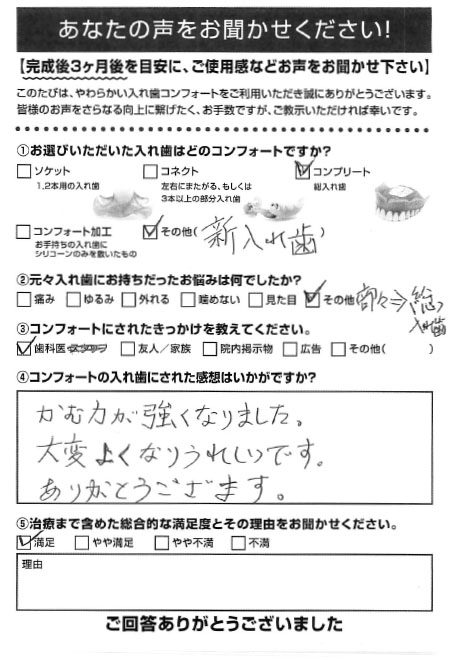 あなたの声をお聞かせください!
【完成後3ヶ月後を目安に、ご使用感などお声をお聞かせ下さい】
このたびは、やわらかい入れ歯コンフォートをご利用いただき誠にありがとうございます。
皆様のお声をさらなる向上に繋げたく、お手数ですが、ご教示いただければ幸いです。
①お選びいただいた入れ歯はどのコンフォートですか?
ソケット コネクト コンプリート
1,2本用の入れ歯 左右にまたがる、もしくは 総入れ歯
3本以上の部分入れ歯
コンフォート加工 その他( 新入れ歯 )
お手持ちの入れ歯に
シリコーンのみを敷いたもの
②元々入れ歯にお持ちだったお悩みは何でしたか?
痛み ゆるみ 外れる 噛めない 見た目 その他 ⇒ 総
入れ歯
③コンフォートにされたきっかけを教えてください。
歯科医・スタッフ 友人/家族 院内掲示物 広告 その他( )
④コンフォートの入れ歯にされた感想はいかがですか?
かむ力が強くなりました。
大変よくなりうれしいです。
ありがとうございます。
⑤治療まで含めた総合的な満足度とその理由をお聞かせください。
満足 やや満足 やや不満 不満
理由
ご回答ありがとうございました